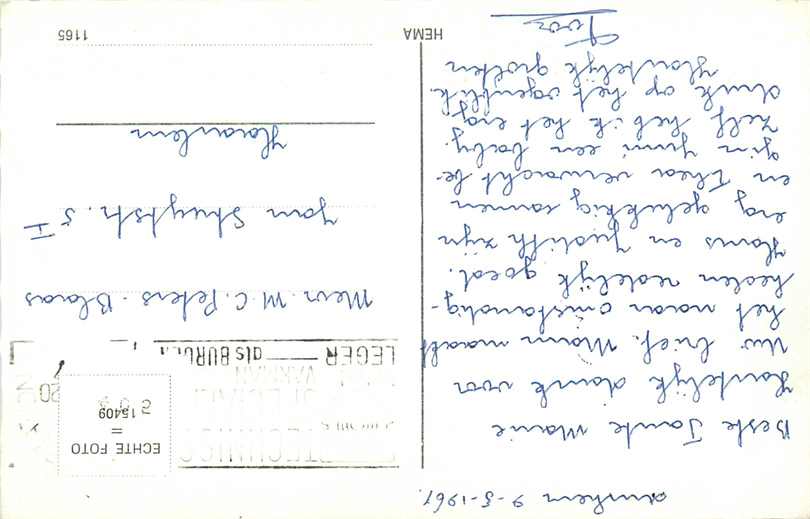 Arnhem 9-5-1967.
Beste Tante Marie
Hartelijk dank voor
Uw brief. Mam maakt
het naar omstandig-
heden redelijk goed.
Hans en Judith zijn
erg gelukkig samen
en Thea verwacht be-
gin Juni een baby.
Zelf heb ik het erg
druk op het ogenblik.
Hartelijk groeten
Toos
TECHNISC
SPECIAL
VAKMAN
LEGER — als BURG
ECHTE FOTO
=
15409
20
Mevr. M. C. Peters - Blaas
Jan Stuytstr. 5 I
Haarlem
HEMA
1165